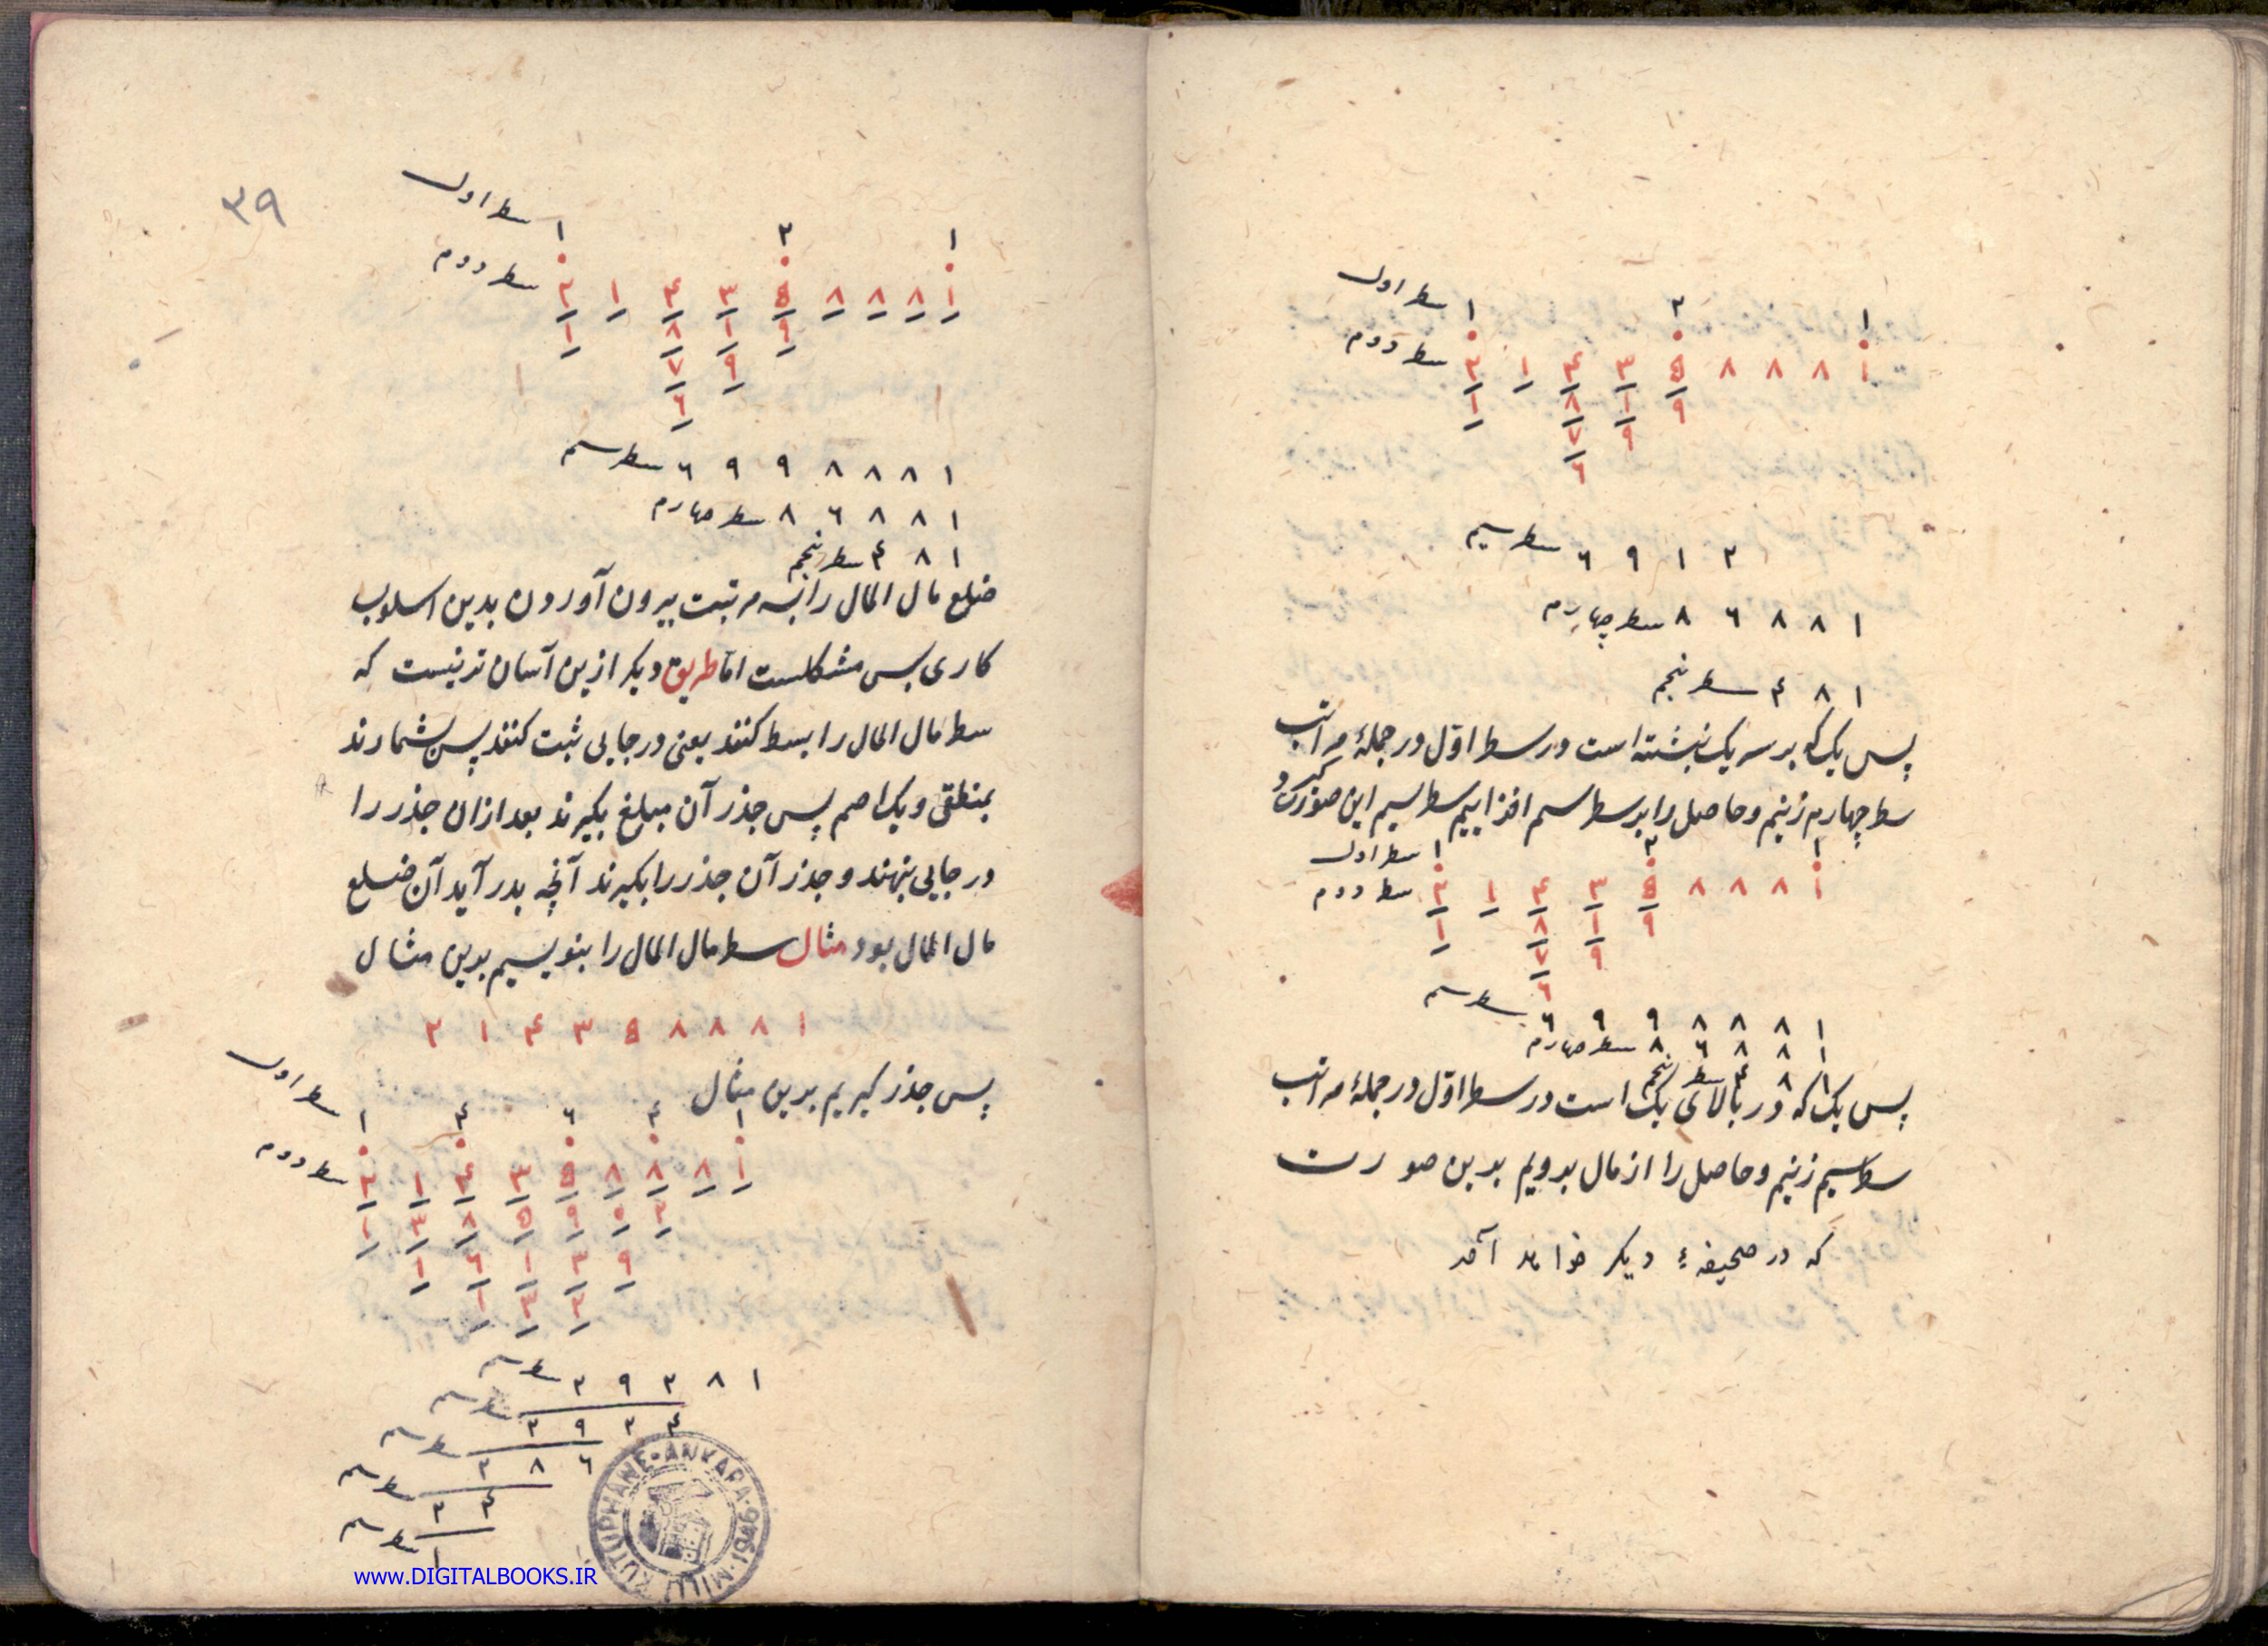 سطر اول ۱ ۲ ۱
سطر دوم ۲ ۱ ۴ ۳ ۵ ۸ ۸ ۸ ۱
۱ ۸ ۱ ۹
۷ ۹
۶
سطر سیم ۶ ۹ ۱ ۲
سطر چهارم ۸ ۶ ۸ ۸ ۱
سطر پنجم ۴ ۸ ۱
پس یک که بر سر یک نبشته است در سطر اوّل در جملهٔ مراتب
سطر چهارم زنیم و حاصل را بر سطر سیم افزاییم سطر سیم این صورت گیرد
سطر اول ۱ ۲ ۱
سطر دوم ۲ ۱ ۴ ۳ ۵ ۸ ۸ ۸ ۱
۱ ۸ ۱ ۹
۷ ۹
۶
سطر سیم ۶ ۹ ۹ ۸ ۸ ۸ ۱
سطر چهارم ۸ ۶ ۸ ۸ ۱
سطر پنجم ۴ ۸ ۱
پس یک که در بالای یک است در سطر اوّل در جملهٔ مراتب
سطر سیم زنیم و حاصل را از مال برویم بدین صورت
که در صحیفهٔ دیکر خواهد آمد
۳۹
سطر اول ۱ ۲ ۱
سطر دوم ۲ ۱ ۴ ۳ ۵ ۸ ۸ ۸ ۱
۱ ۸ ۱ ۹
۷ ۹
۶
سطر سیم ۶ ۹ ۹ ۸ ۸ ۸ ۱
سطر چهارم ۸ ۶ ۸ ۸ ۱
سطر پنجم ۴ ۸ ۱
ضلع مال المال را بسه مرتبت بیرون آوردن بدین اسلوب
کاری بس مشکلست اما طریق دیکر ازین آسان تر نیست که
سطر مال المال را بسط کنند یعنی در جایی ثبت کنند پس بشمارند
بمنطقی و یک اصم پس جذر آن مبلغ بکیرند بعد ازان جذر را
در جایی بنهند و جذر آن جذر را بکیرند آنچه بدر آید آن ضلع
مال المال بود مثال سطر مال المال را بنویسیم بدین مثال
۲ ۱ ۴ ۳ ۵ ۸ ۸ ۸ ۱
پس جذر کیریم بدین مثال
سطر اول ۱ ۴ ۶ ۴ ۱
سطر دوم ۲ ۱ ۴ ۳ ۵ ۸ ۸ ۸ ۱
۱ ۳ ۸ ۵ ۹ ۵ ۲
۱ ۶ ۱ ۳ ۹
۱ ۳ ۲
سطر سیم ۲ ۹ ۲ ۸ ۱
سطر سیم ۲ ۹ ۲ ۴
سطر سیم ۲ ۸ ۶
سطر سیم ۲ ۴
سطر سیم ۱
MILLI KUTUPHANE • ANKARA • 1946
www.DIGITALBOOKS.IR